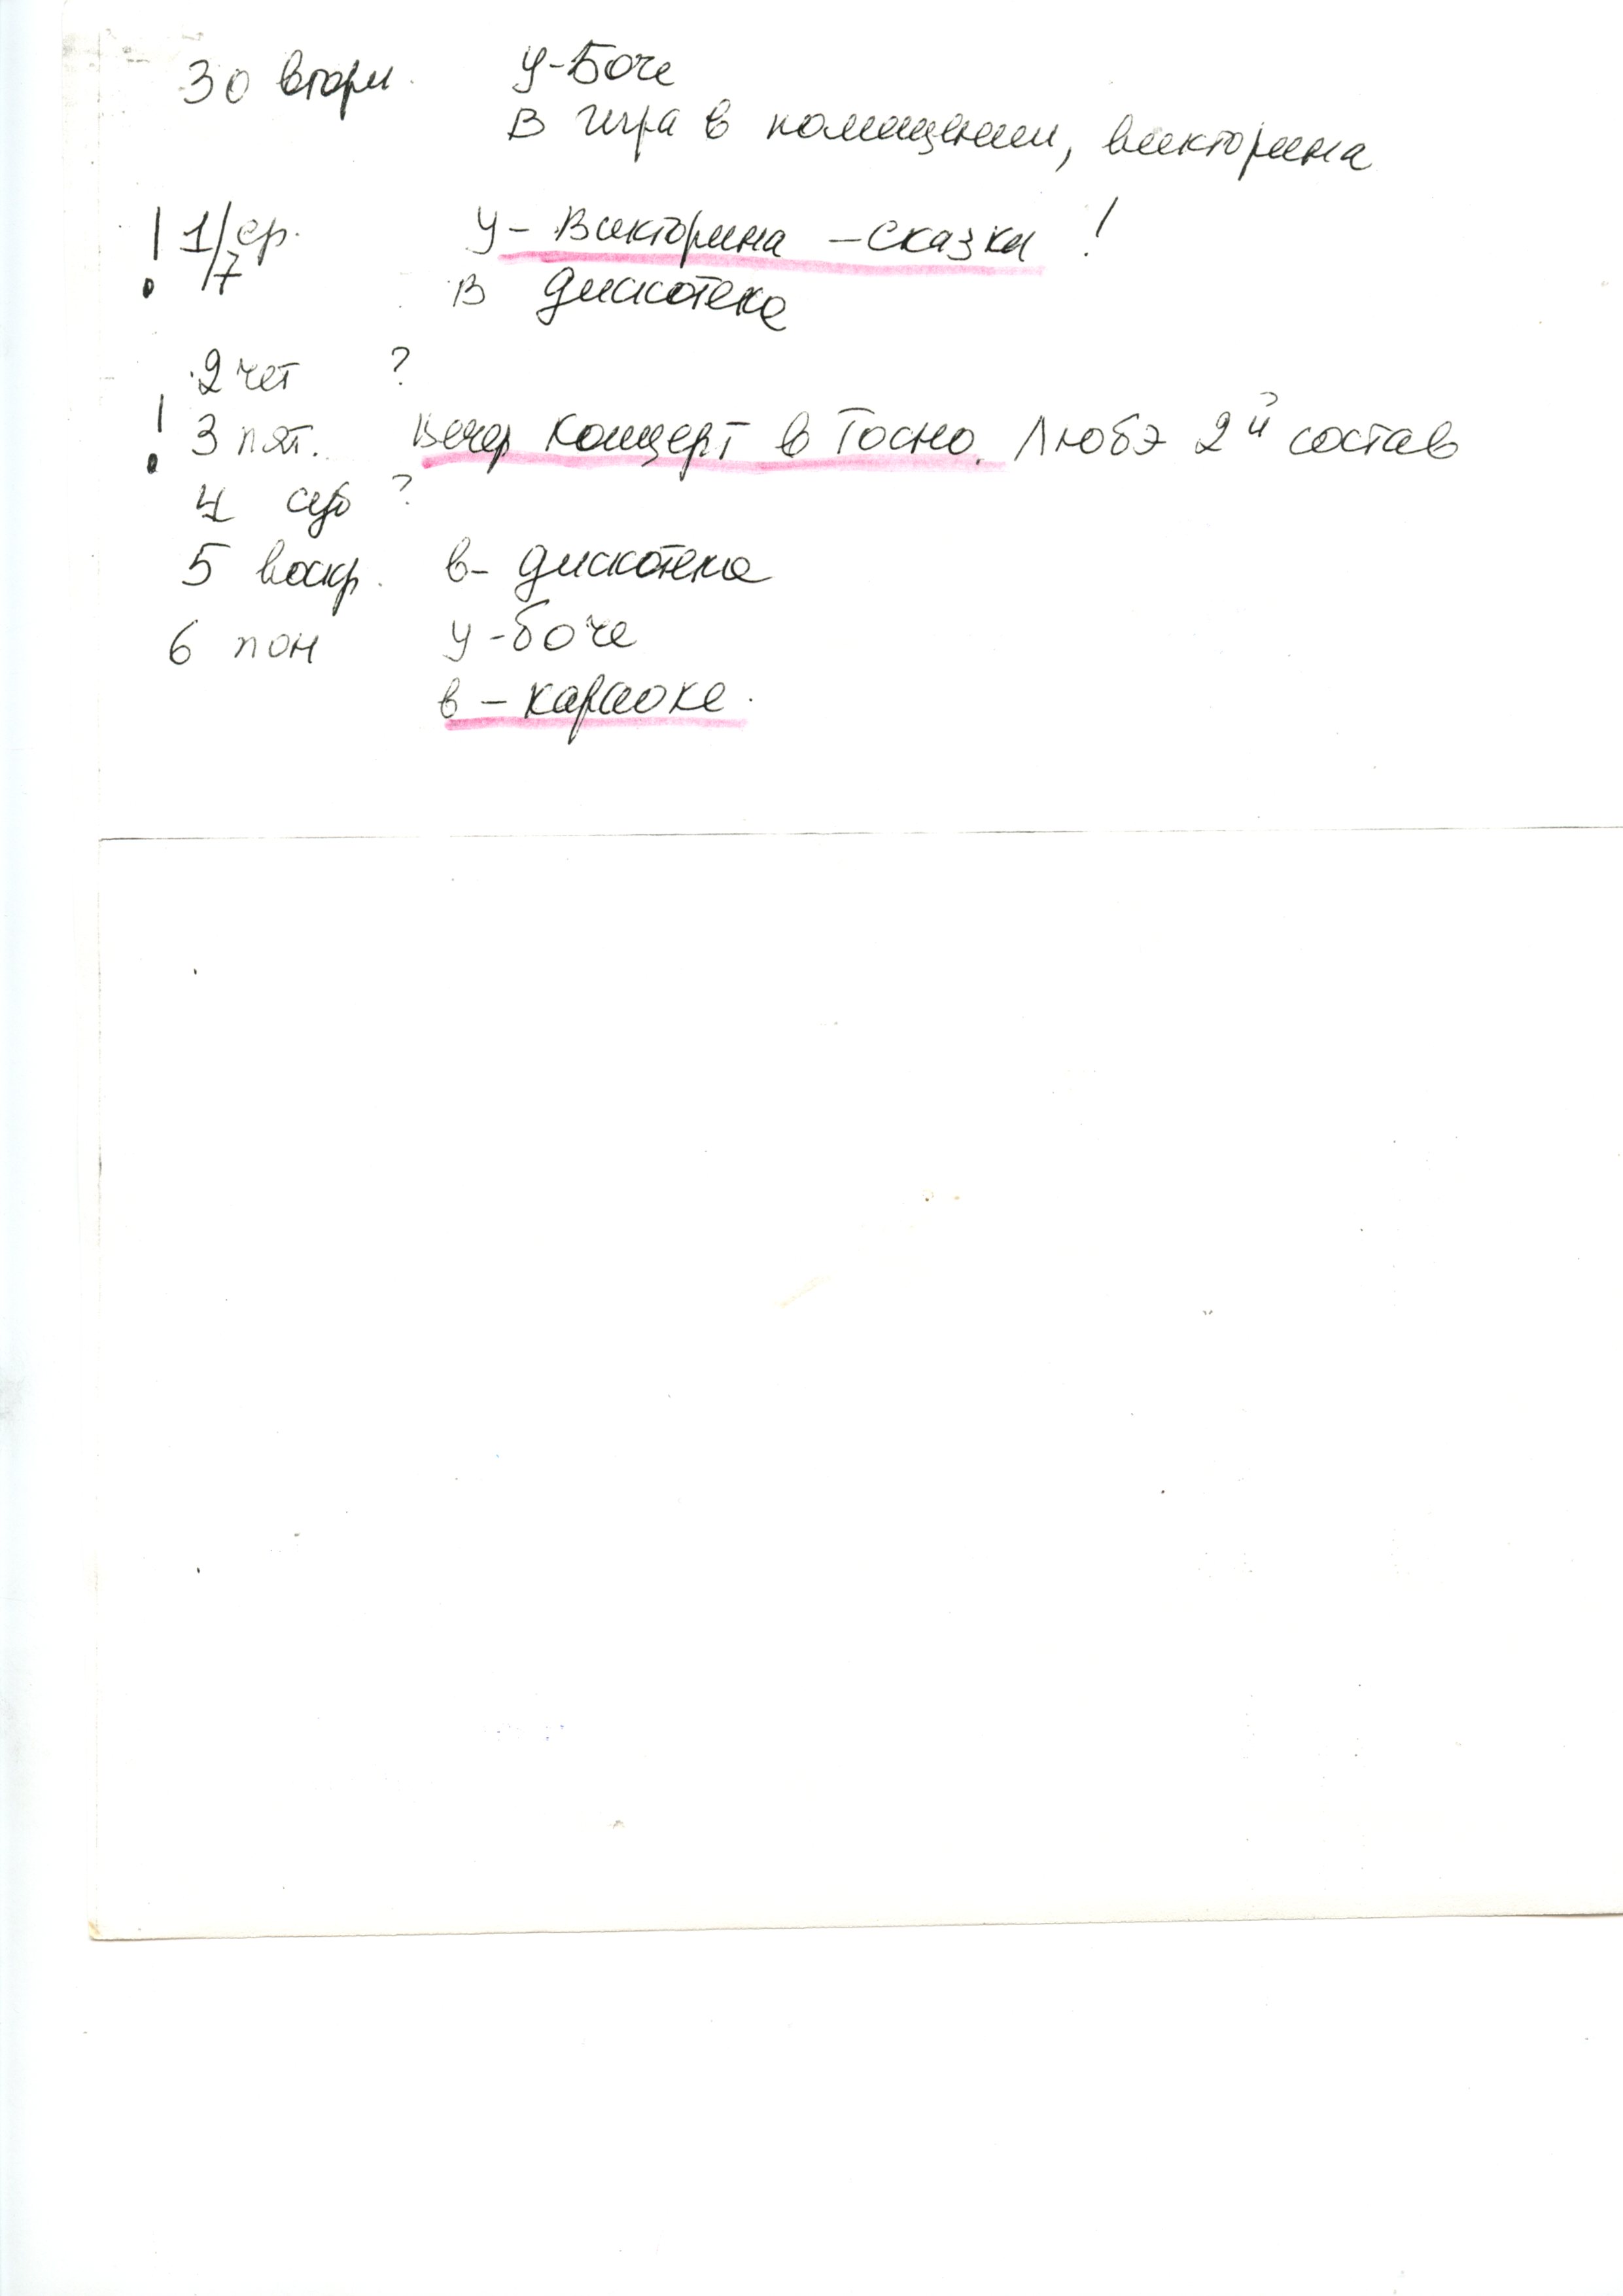 30 вторн. У-Боче
В игра в помещении, викторина
! 1/7 ср. У- Викторина - сказки !
В дискотека
2 чет ?
! 3 пят. Вечер концерт в Тосно. Любэ 2й состав
4 суб ?
5 воскр. в- дискотека
6 пон у-боче
в - караоке.